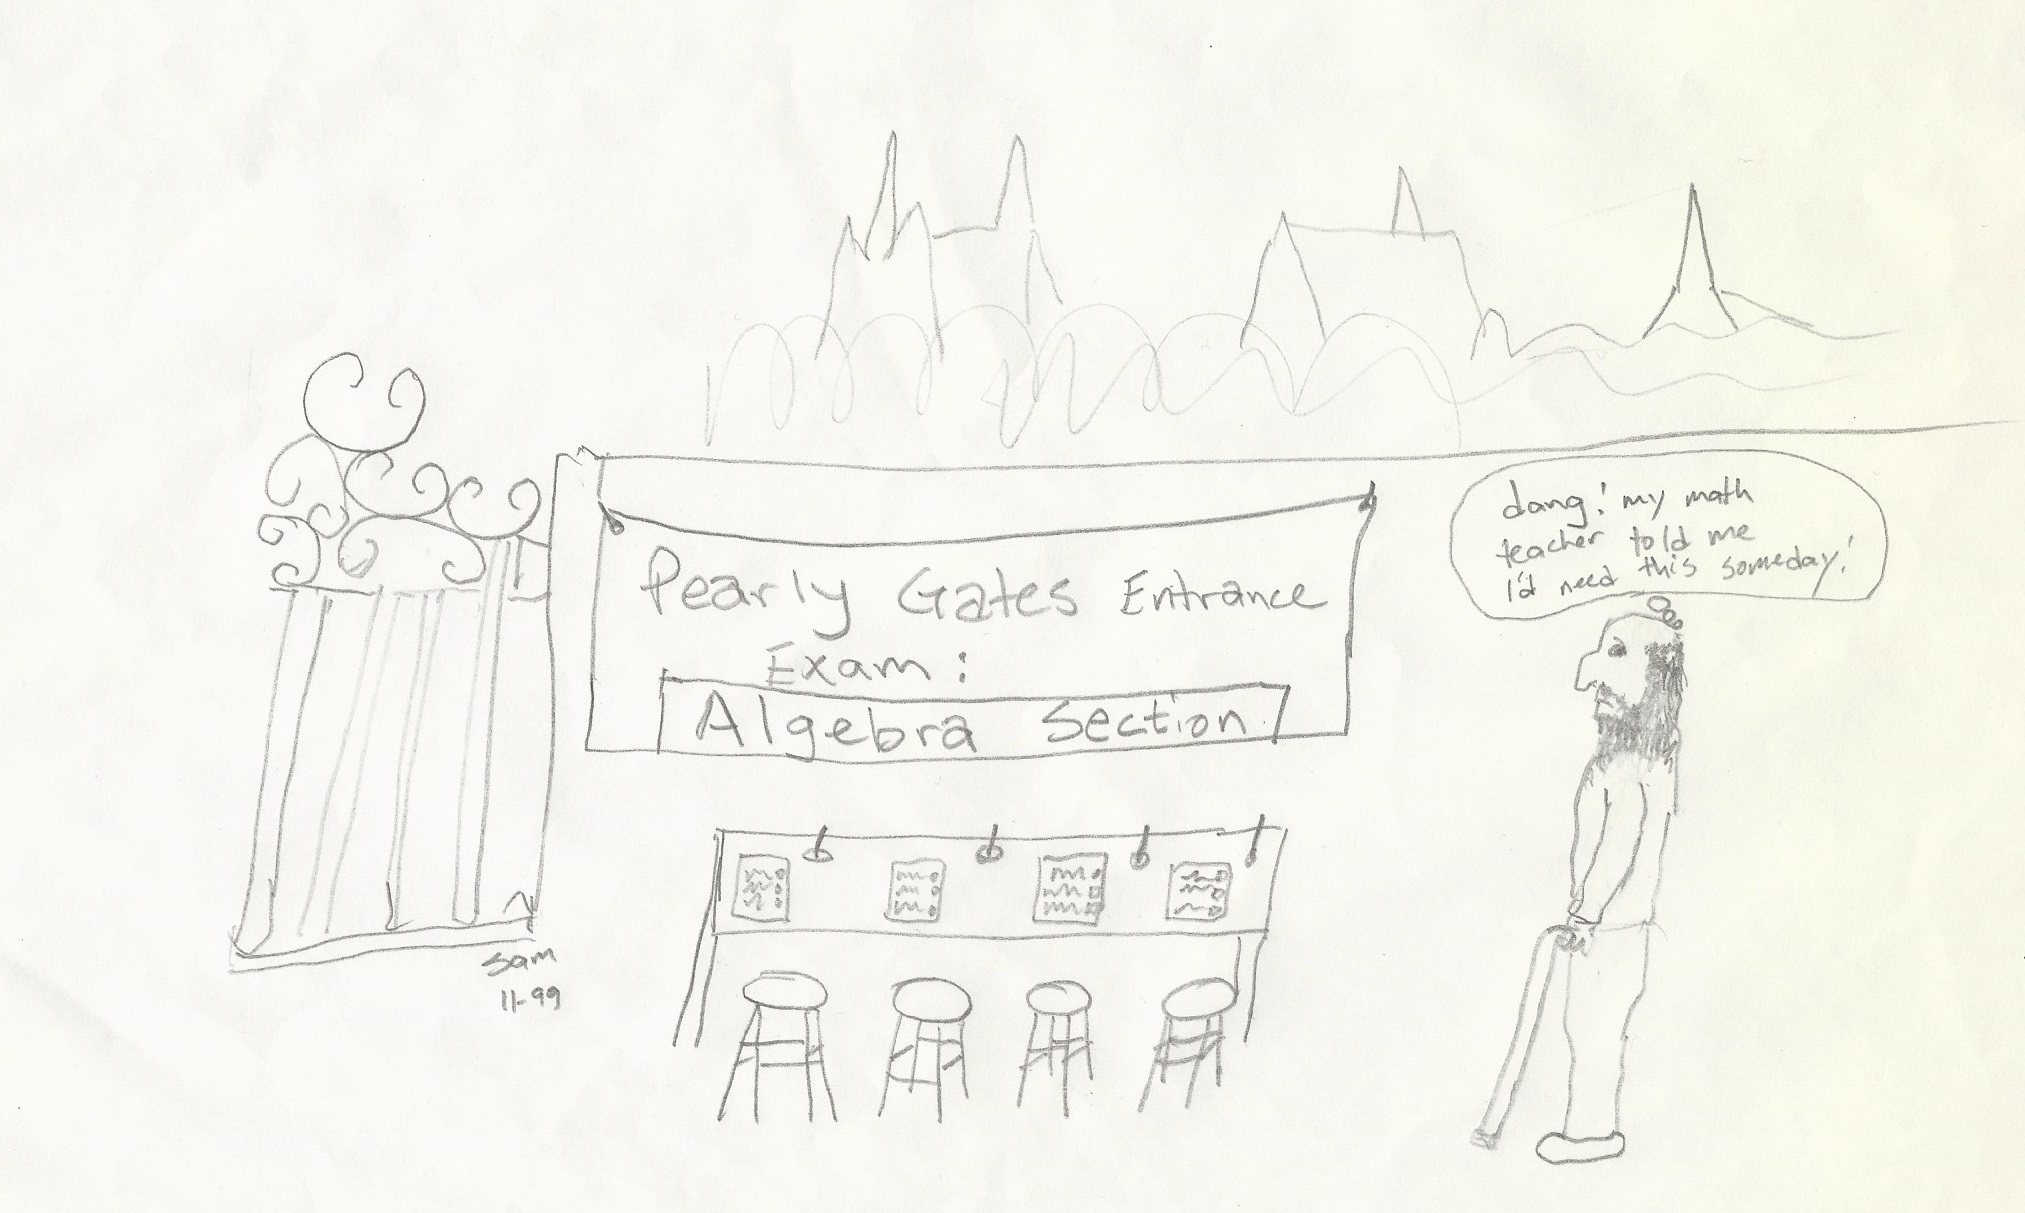 Pearly Gates Entrance
Exam:
Algebra Section
dang! my math
teacher told me
I'd need this someday!
Sam
11-99